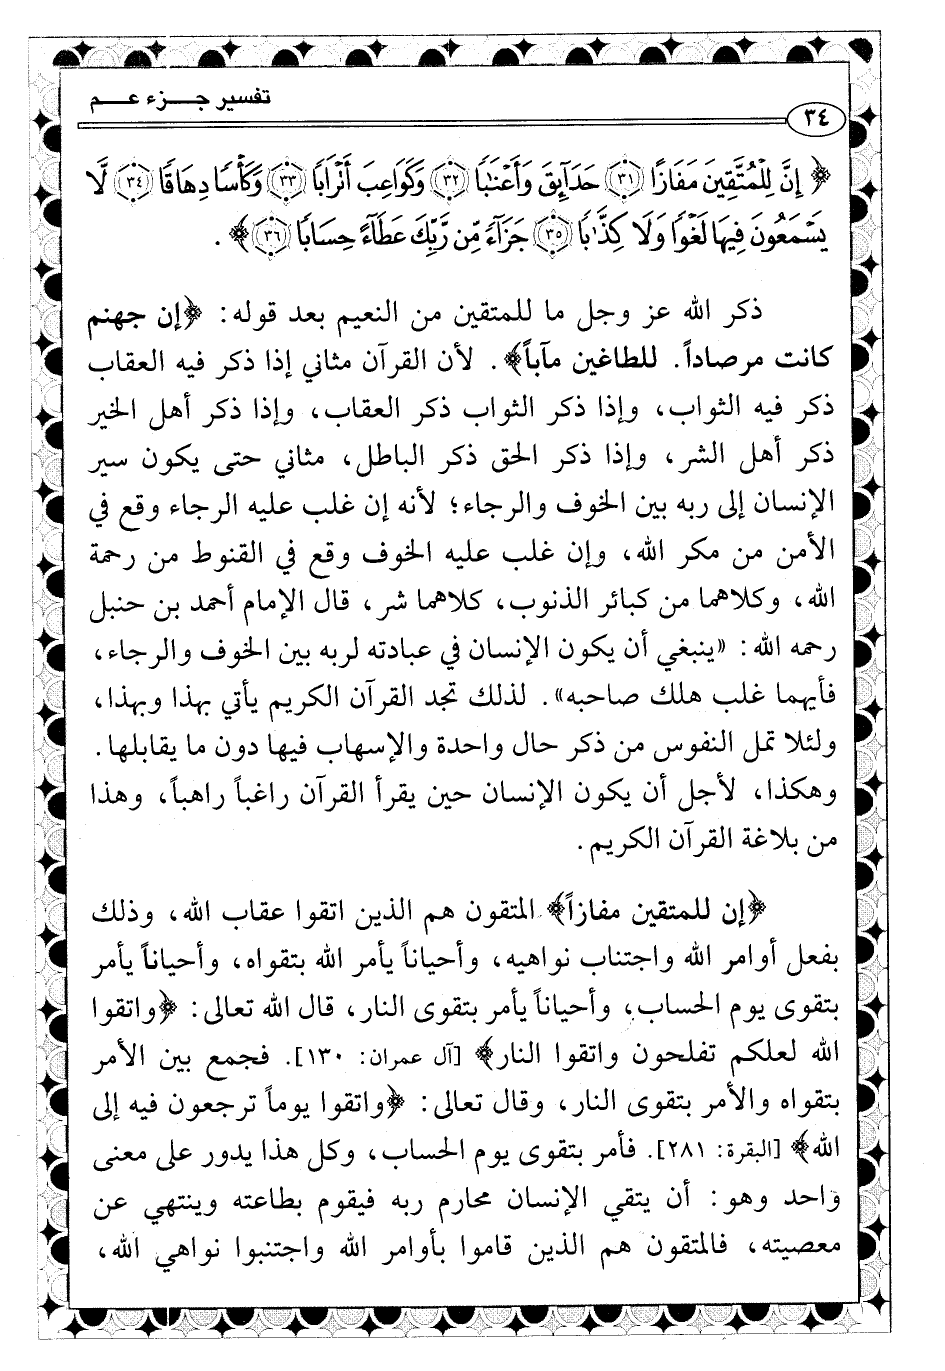 تفسير جزء عم
٣٤
﴿ إِنَّ لِلْمُتَّقِينَ مَفَازًا ﴿٣١﴾ حَدَآئِقَ وَأَعْنَٰبًا ﴿٣٢﴾ وَكَوَاعِبَ أَتْرَابًا ﴿٣٣﴾ وَكَأْسًا دِهَاقًا ﴿٣٤﴾ لَّا
يَسْمَعُونَ فِيهَا لَغْوًا وَلَا كِذَّٰبًا ﴿٣٥﴾ جَزَآءً مِّن رَّبِّكَ عَطَآءً حِسَابًا ﴿٣٦﴾ ﴾ .
ذكر الله عز وجل ما للمتقين من النعيم بعد قوله: ﴿إن جهنم
كانت مرصاداً. للطاغين مآباً﴾. لأن القرآن مثاني إذا ذكر فيه العقاب
ذكر فيه الثواب، وإذا ذكر الثواب ذكر العقاب، وإذا ذكر أهل الخير
ذكر أهل الشر، وإذا ذكر الحق ذكر الباطل، مثاني حتى يكون سير
الإنسان إلى ربه بين الخوف والرجاء؛ لأنه إن غلب عليه الرجاء وقع في
الأمن من مكر الله، وإن غلب عليه الخوف وقع في القنوط من رحمة
الله، وكلاهما من كبائر الذنوب، كلاهما شر، قال الإمام أحمد بن حنبل
رحمه الله: «ينبغي أن يكون الإنسان في عبادته لربه بين الخوف والرجاء،
فأيهما غلب هلك صاحبه». لذلك تجد القرآن الكريم يأتي بهذا وبهذا،
ولئلا تمل النفوس من ذكر حال واحدة والإسهاب فيها دون ما يقابلها.
وهكذا، لأجل أن يكون الإنسان حين يقرأ القرآن راغباً راهباً، وهذا
من بلاغة القرآن الكريم.
﴿إن للمتقين مفازاً﴾ المتقون هم الذين اتقوا عقاب الله، وذلك
بفعل أوامر الله واجتناب نواهيه، وأحياناً يأمر الله بتقواه، وأحياناً يأمر
بتقوى يوم الحساب، وأحياناً يأمر بتقوى النار، قال الله تعالى: ﴿واتقوا
الله لعلكم تفلحون واتقوا النار﴾ [آل عمران: ١٣٠]. فجمع بين الأمر
بتقواه والأمر بتقوى النار، وقال تعالى: ﴿واتقوا يوماً ترجعون فيه إلى
الله﴾ [البقرة: ٢٨١]. فأمر بتقوى يوم الحساب، وكل هذا يدور على معنى
واحد وهو: أن يتقي الإنسان محارم ربه فيقوم بطاعته وينتهي عن
معصيته، فالمتقون هم الذين قاموا بأوامر الله واجتنبوا نواهي الله،